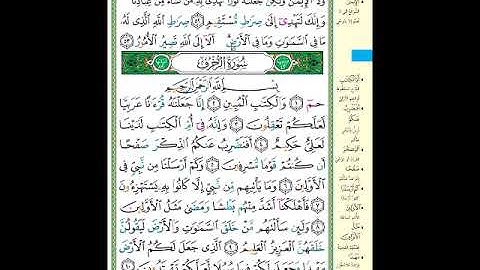 وَلَا ٱلْإِيمَٰنُ وَلَٰكِن جَعَلْنَٰهُ نُورًا نَّهْدِى بِهِۦ مَن نَّشَآءُ مِنْ عِبَادِنَا
وَإِنَّكَ لَتَهْدِىٓ إِلَىٰ صِرَٰطٍ مُّسْتَقِيمٍ ٥٢ صِرَٰطِ ٱللَّهِ ٱلَّذِى لَهُۥ
مَا فِى ٱلسَّمَٰوَٰتِ وَمَا فِى ٱلْأَرْضِ أَلَآ إِلَى ٱللَّهِ تَصِيرُ ٱلْأُمُورُ ٥٣
سُورَةُ ٱلزُّخْرُفِ
بِسْمِ ٱللَّهِ ٱلرَّحْمَٰنِ ٱلرَّحِيمِ
حمٓ ١ وَٱلْكِتَٰبِ ٱلْمُبِينِ ٢ إِنَّا جَعَلْنَٰهُ قُرْءَٰنًا عَرَبِيًّا
لَّعَلَّكُمْ تَعْقِلُونَ ٣ وَإِنَّهُۥ فِىٓ أُمِّ ٱلْكِتَٰبِ لَدَيْنَا
لَعَلِىٌّ حَكِيمٌ ٤ أَفَنَضْرِبُ عَنكُمُ ٱلذِّكْرَ صَفْحًا
أَن كُنتُمْ قَوْمًا مُّسْرِفِينَ ٥ وَكَمْ أَرْسَلْنَا مِن نَّبِىٍّ فِى
ٱلْأَوَّلِينَ ٦ وَمَا يَأْتِيهِم مِّن نَّبِىٍّ إِلَّا كَانُوا۟ بِهِۦ يَسْتَهْزِءُونَ ٧
فَأَهْلَكْنَآ أَشَدَّ مِنْهُم بَطْشًا وَمَضَىٰ مَثَلُ ٱلْأَوَّلِينَ ٨
وَلَئِن سَأَلْتَهُم مَّنْ خَلَقَ ٱلسَّمَٰوَٰتِ وَٱلْأَرْضَ لَيَقُولُنَّ
خَلَقَهُنَّ ٱلْعَزِيزُ ٱلْعَلِيمُ ٩ ٱلَّذِى جَعَلَ لَكُمُ ٱلْأَرْضَ
مَهْدًا وَجَعَلَ لَكُمْ فِيهَا سُبُلًا لَّعَلَّكُمْ تَهْتَدُونَ ١٠